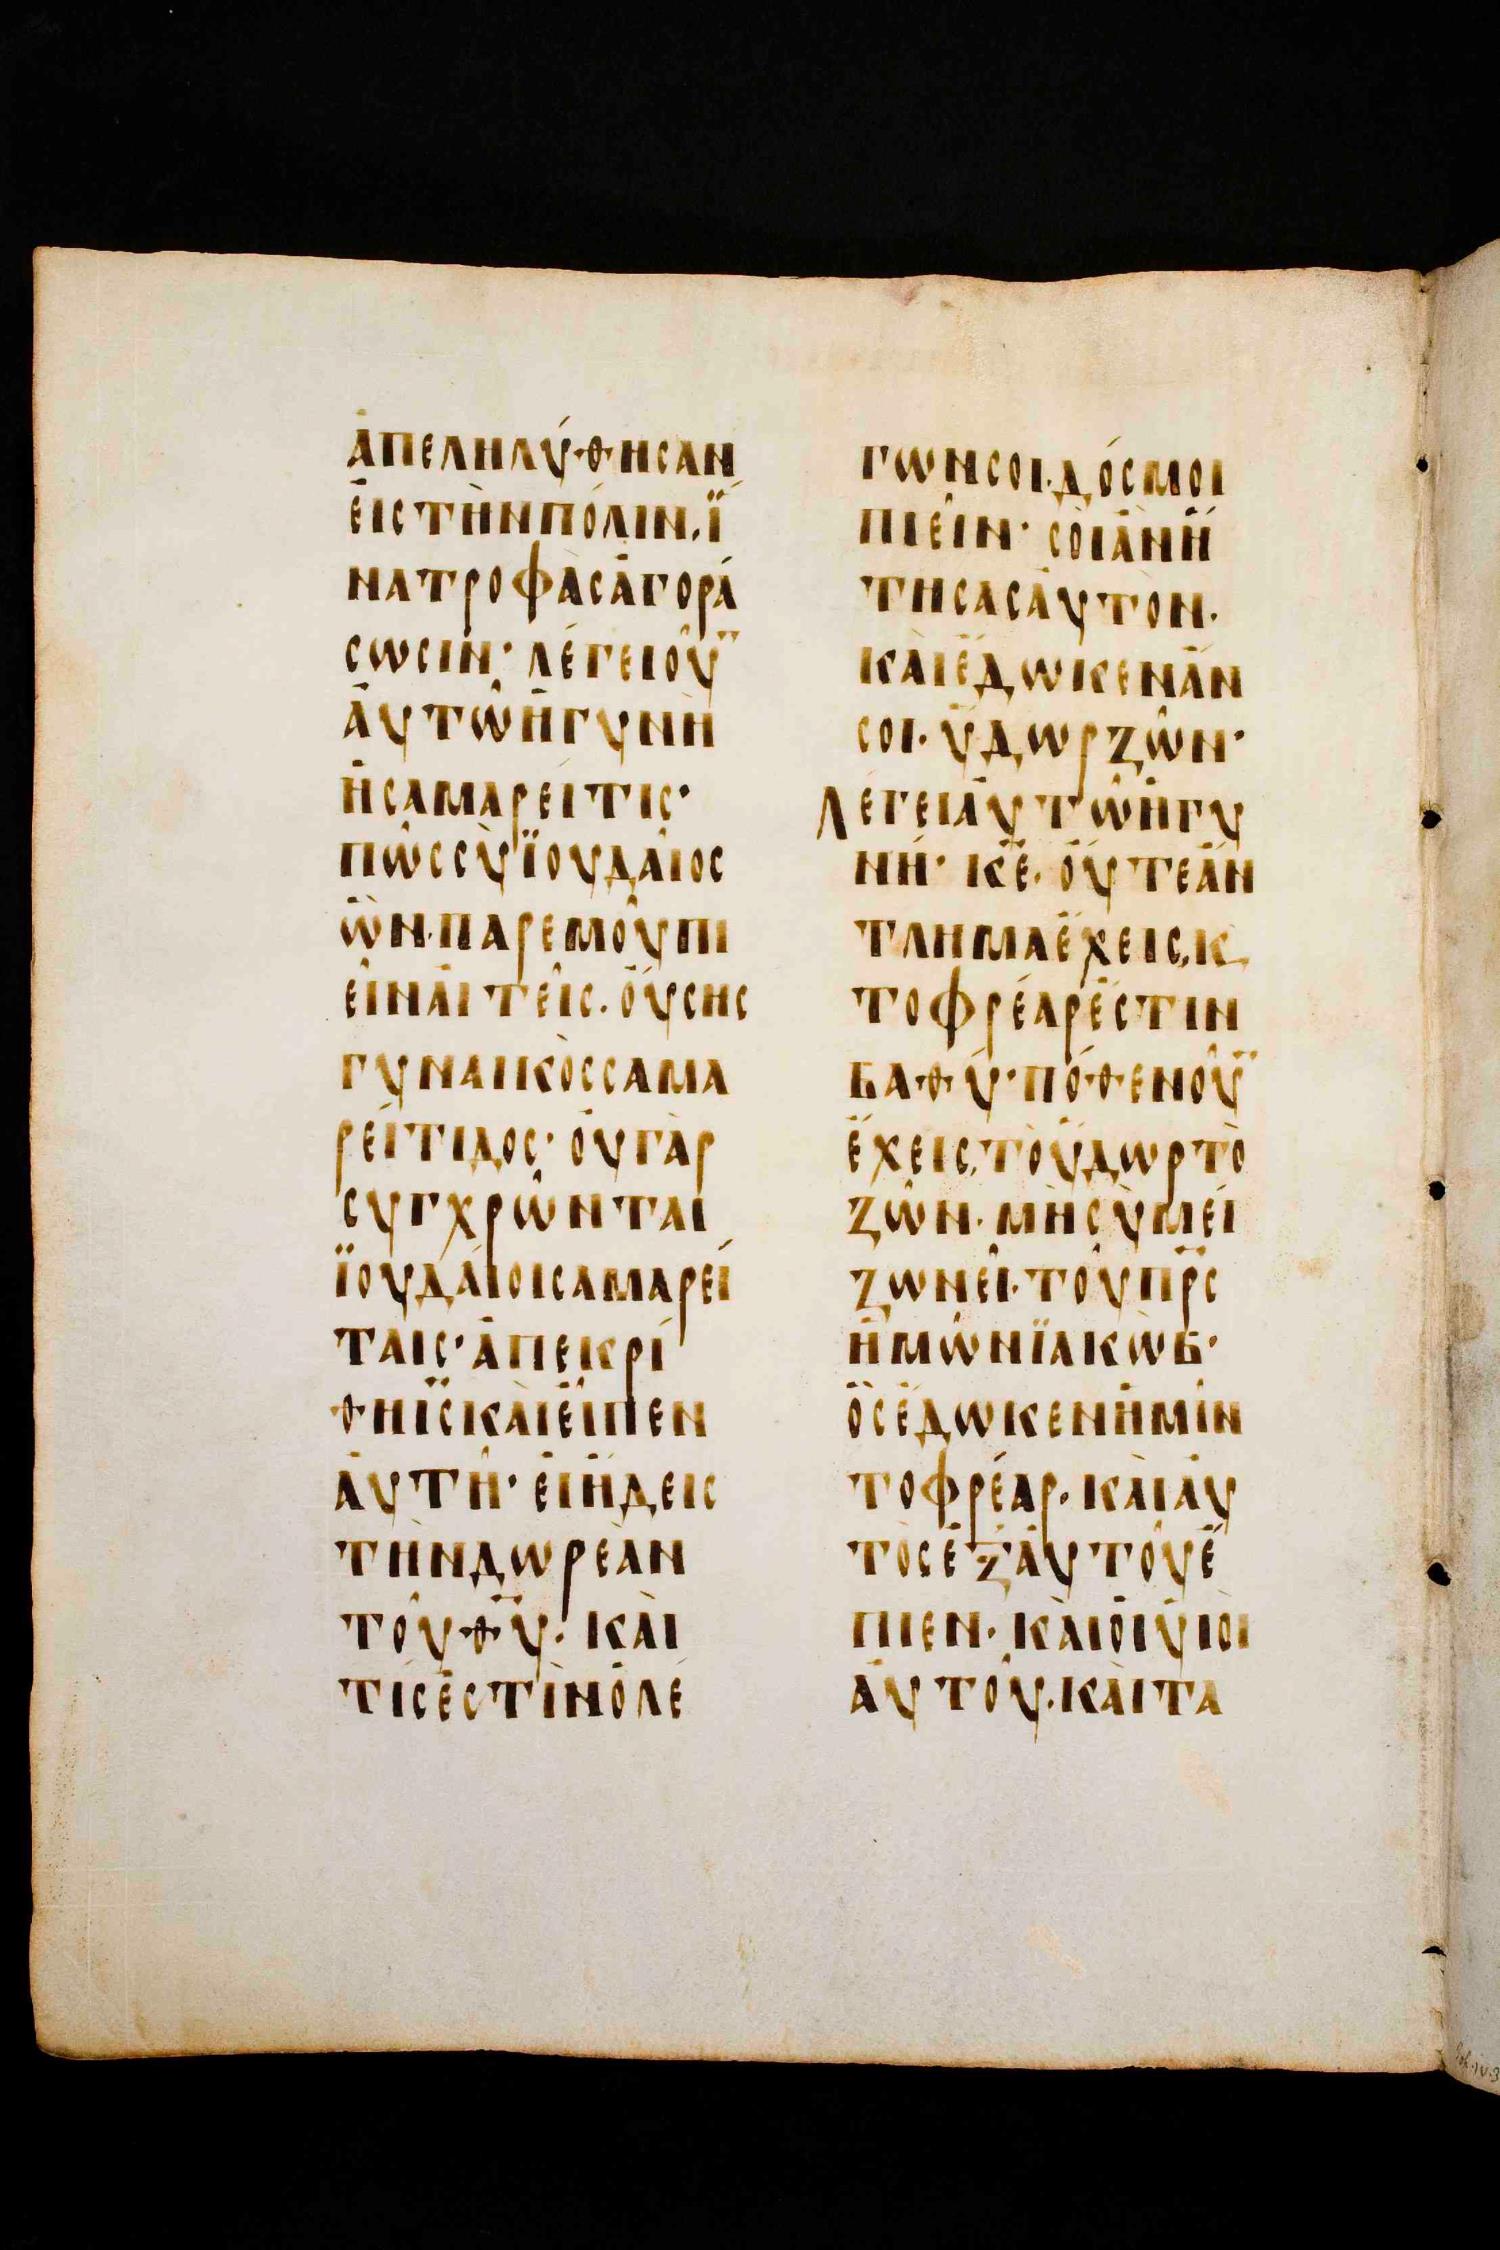 ἀπεληλύθησαν
ἐις τὴν πόλιν, ἵ
να τροφὰς ἀγορά
σωσιν· λέγει οὖν
ἀυτῶ ἡ γυνὴ
ἡ σαμαρείτις·
πῶς σὺ ϊουδαῖος
ὢν· παρ εμοῦ πι
εῖν ἀιτεῖς· ὄυσης
γυναικὸς σαμα
ρείτιδος· ὀυ γὰρ
συγχρῶνται
ϊουδάιοι σαμαρεί
ταις· ἀπεκρί
θη ις και ἐιπεν
ἀυτῆ· ἐι ἤδεις
τὴν δωρεὰν
τοῦ θυ· καὶ
τίς ἐστὶν ὁ λέ
γων σοι· δός μοι
πιεῖν· σὸι ἂν ἤ
τησας ἀυτον·
κὰι ἔδωκεν ἄν
σοι· ὕδωρ ζῶν·
Λέγει ἀυτῶ ἡ γυ
νή· κε· ὄυτε ἄν
τλημα ἔχεις, κ
το φρέαρ ἐστιν
βαθύ· πόθεν οὖν
ἔχεις, τὸ ὕδωρ τὸ
ζῶν· μὴ σὺ μεί
ζων εἶ· τοῦ πρς
ἡμῶν ϊακὼβ·
ὃς ἔδωκεν ἡμῖν
το φρέαρ· κὰι ἀυ
τὸς ἐξ ἀυτοῦ ἔ
πιεν· κὰι ὁι ὑιὸι
ἀυτοῦ· κὰι τα